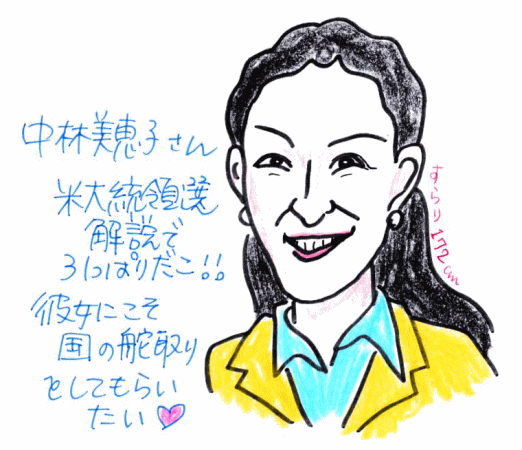 中林美恵子さん
米大統領選
解説で
ひっぱりだこ!!
彼女にこそ
国の舵取り
をしてもらい
たい
すらり172cm